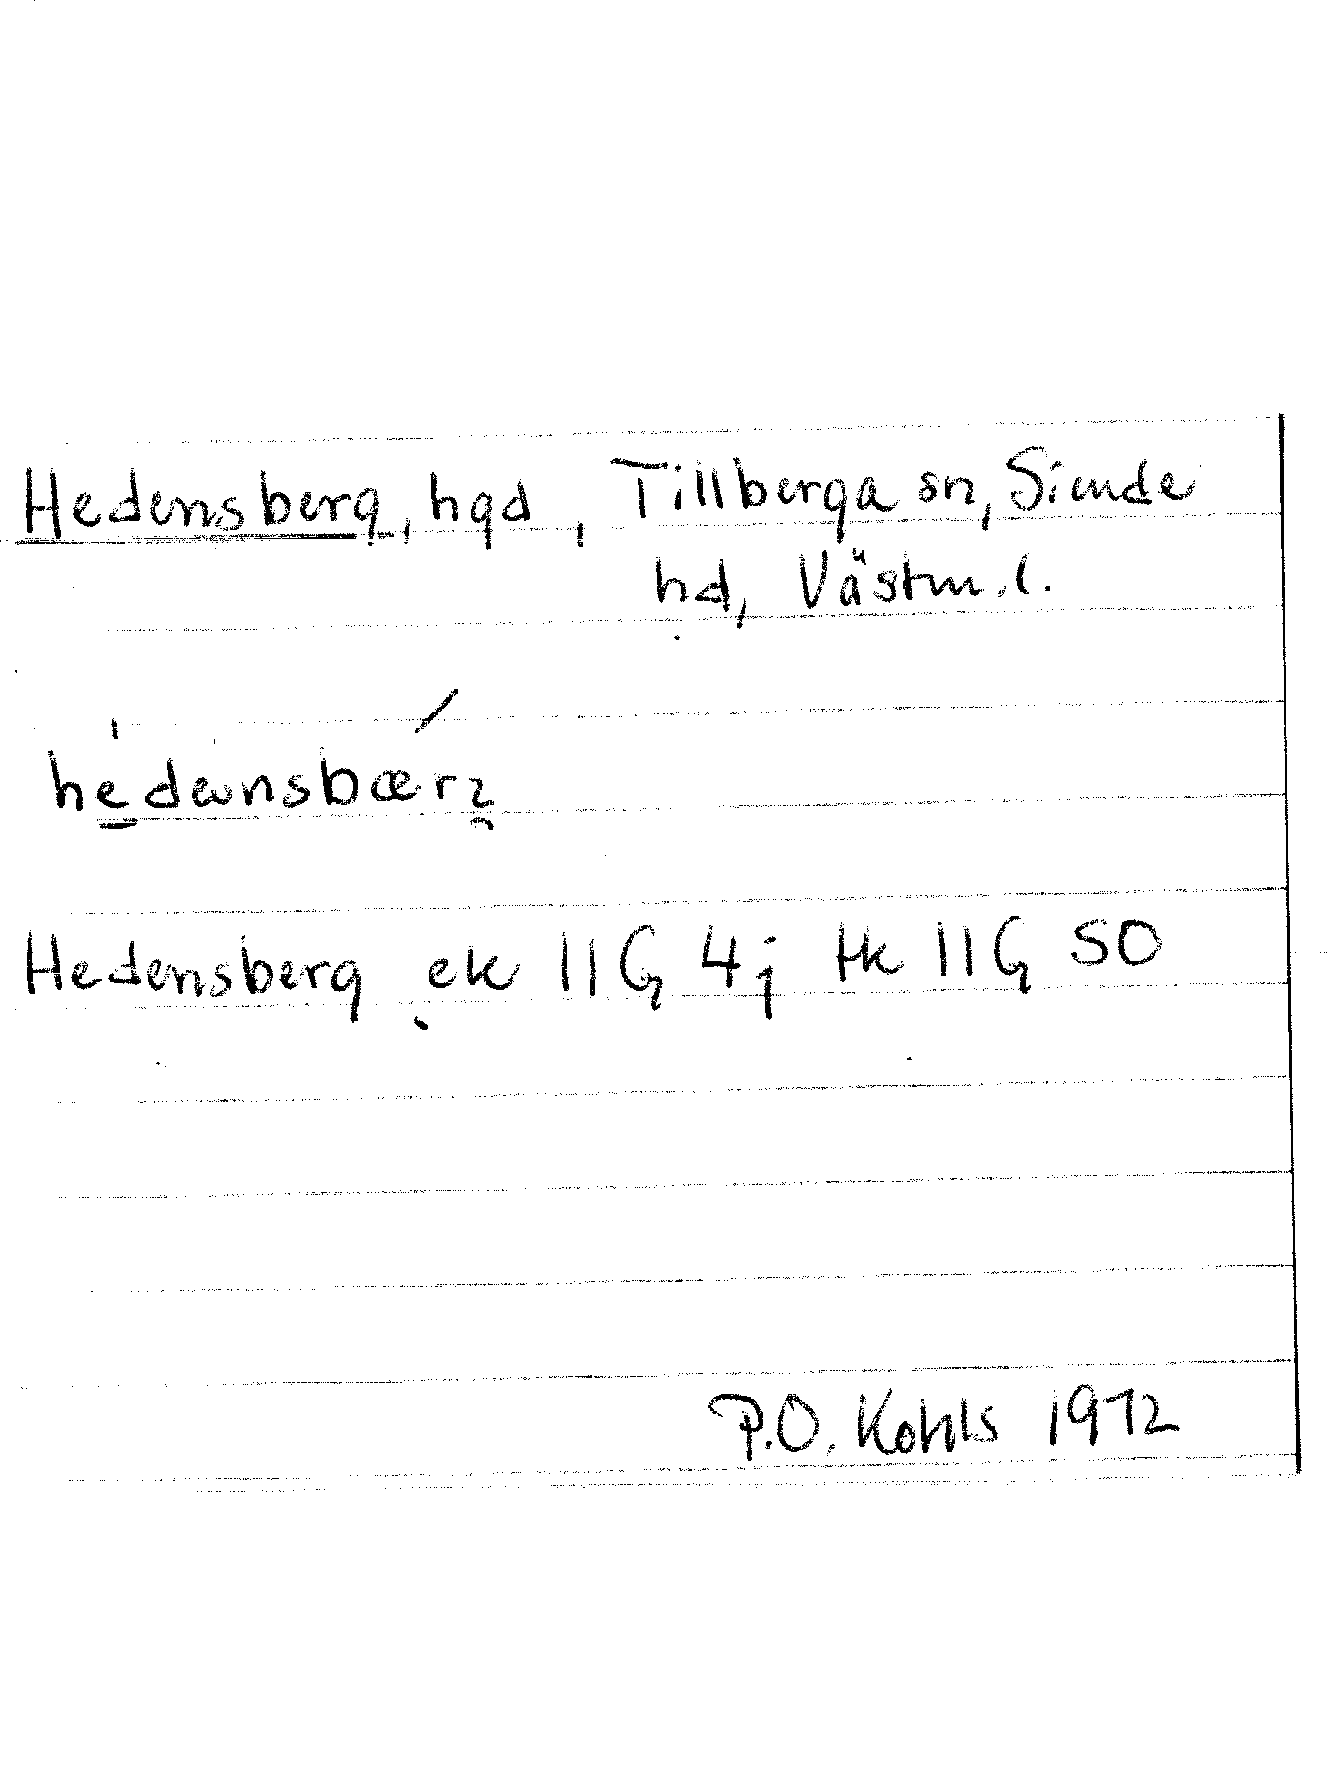 Hedensberg, hgd, Tillberga sn, Siende
hd, Västm. l.
Hedensberg ek 11G 4j tk 11G SO
P.O. Kohls 1972